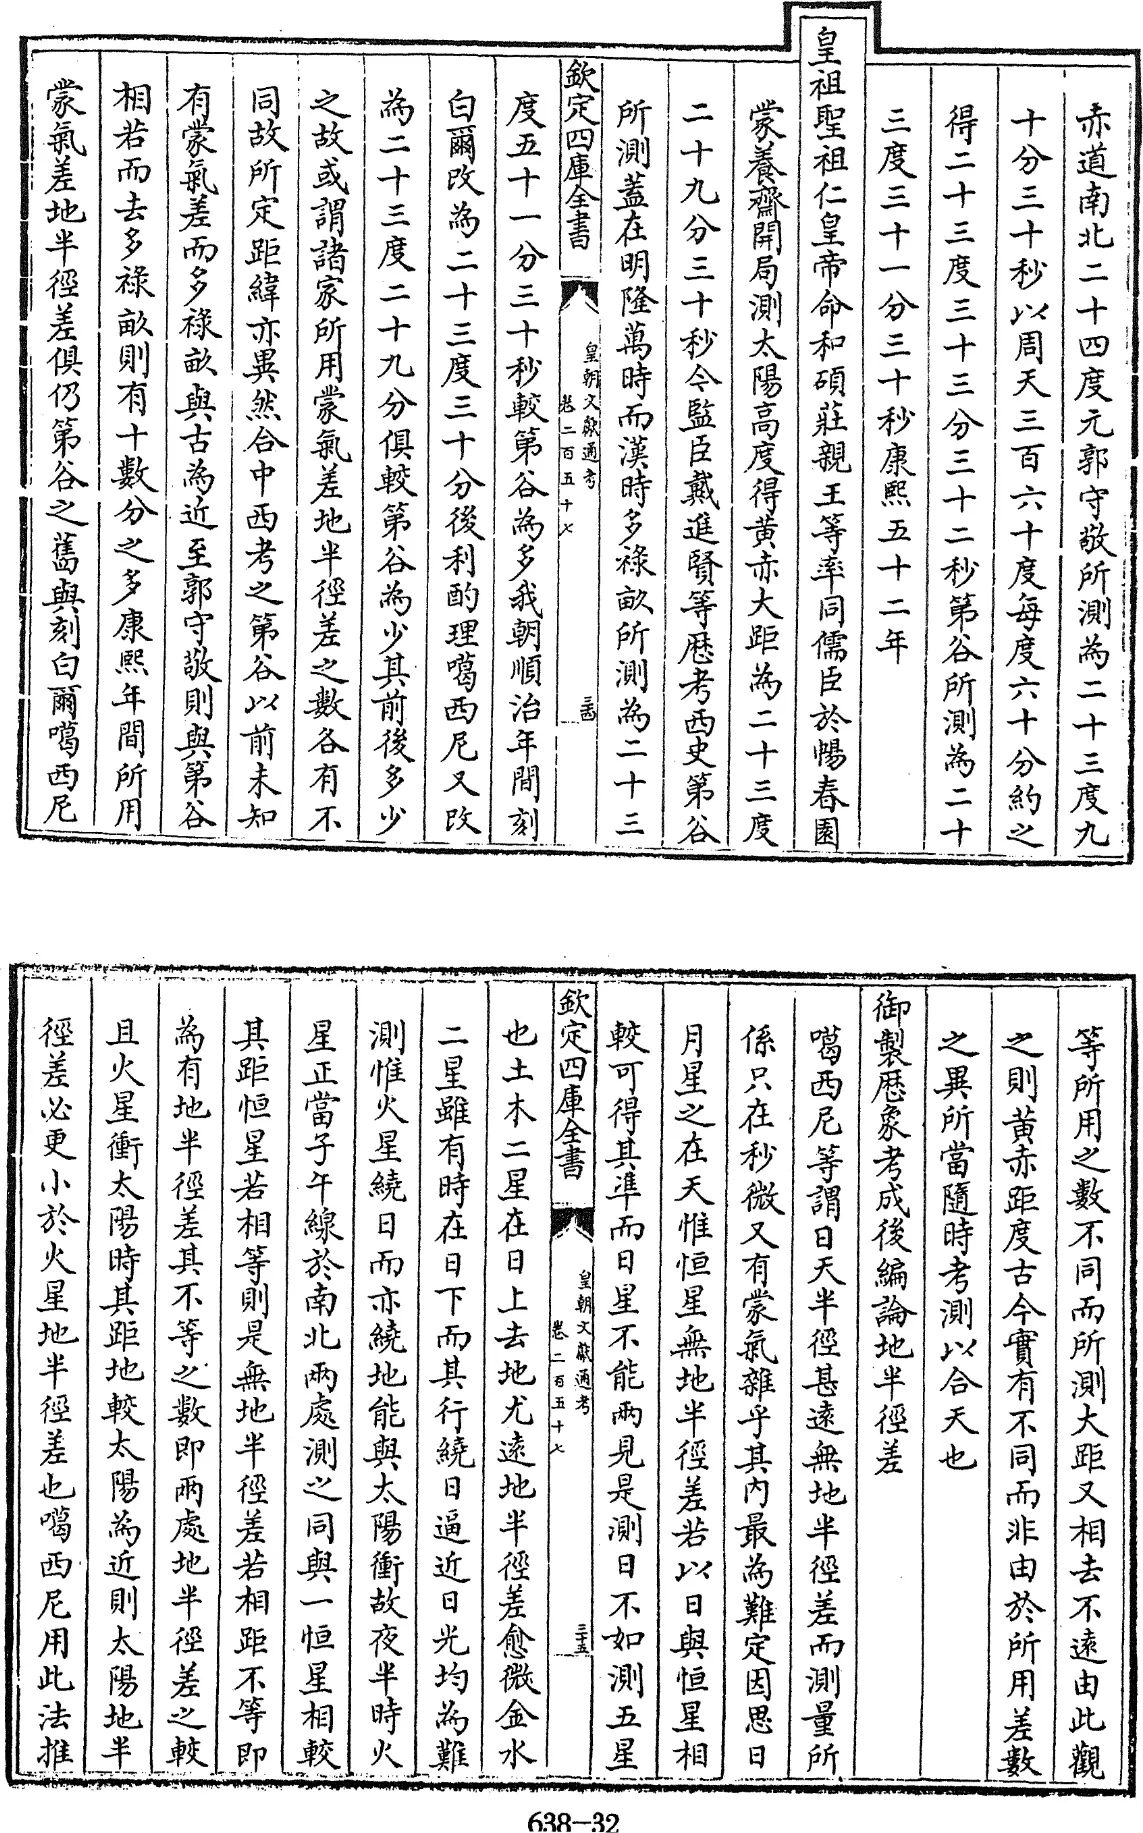 赤道南北二十四度元郭守敬所測為二十三度九
十分三十秒以周天三百六十度每度六十分約之
得二十三度三十三分三十二秒第谷所測為二十
三度三十一分三十秒康熙五十二年
皇祖聖祖仁皇帝命和碩莊親王等率同儒臣於暢春園
蒙養齋開局測太陽高度得黃赤大距為二十三度
二十九分三十秒今監臣戴進賢等歷考西史第谷
所測蓋在明隆萬時而漢時多祿畝所測為二十三
欽定四庫全書
皇朝文獻通考
卷二百五十七
三十四
度五十一分三十秒較第谷為多我朝順治年間刻
白爾改為二十三度三十分後利酌理噶西尼又改
為二十三度二十九分俱較第谷為少其前後多少
之故或謂諸家所用蒙氣差地半徑差之數各有不
同故所定距緯亦異然合中西考之第谷以前未知
有蒙氣差而多祿畝與古為近至郭守敬則與第谷
相若而去多祿畝則有十數分之多康熙年間所用
蒙氣差地半徑差俱仍第谷之舊與刻白爾噶西尼
等所用之數不同而所測大距又相去不遠由此觀
之則黃赤距度古今實有不同而非由於所用差數
之異所當隨時考測以合天也
御製歷象考成後編論地半徑差
噶西尼等謂日天半徑甚遠無地半徑差而測量所
係只在秒微又有蒙氣雜乎其內最為難定因思日
月星之在天惟恒星無地半徑差若以日與恒星相
較可得其準而日星不能兩見是測日不如測五星
欽定四庫全書
皇朝文獻通考
卷二百五十七
三十五
也土木二星在日上去地尤遠地半徑差愈微金水
二星雖有時在日下而其行繞日逼近日光均為難
測惟火星繞日而亦繞地能與太陽衝故夜半時火
星正當子午線於南北兩處測之同與一恒星相較
其距恒星若相等則是無地半徑差若相距不等即
為有地半徑差其不等之數即兩處地半徑差之較
且火星衝太陽時其距地較太陽為近則太陽地半
徑差必更小於火星地半徑差也噶西尼用此法推
638-32